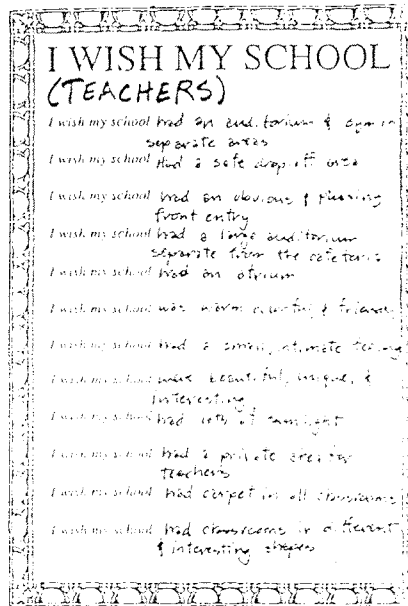 I WISH MY SCHOOL
(TEACHERS)
I wish my school had an auditorium & gym in
separate areas
I wish my school Had a safe drop off area
I wish my school had an obvious & pleasing
front entry
I wish my school had a large auditorium
separate from the cafeteria
I wish my school had an atrium
I wish my school was warm colorful & friendly
I wish my school had a small, intimate feeling
I wish my school were beautiful, unique, &
interesting
I wish my school had lots of sunlight
I wish my school had a private area for
teachers
I wish my school had carpet in all classrooms
I wish my school had classrooms in different
& interesting shapes